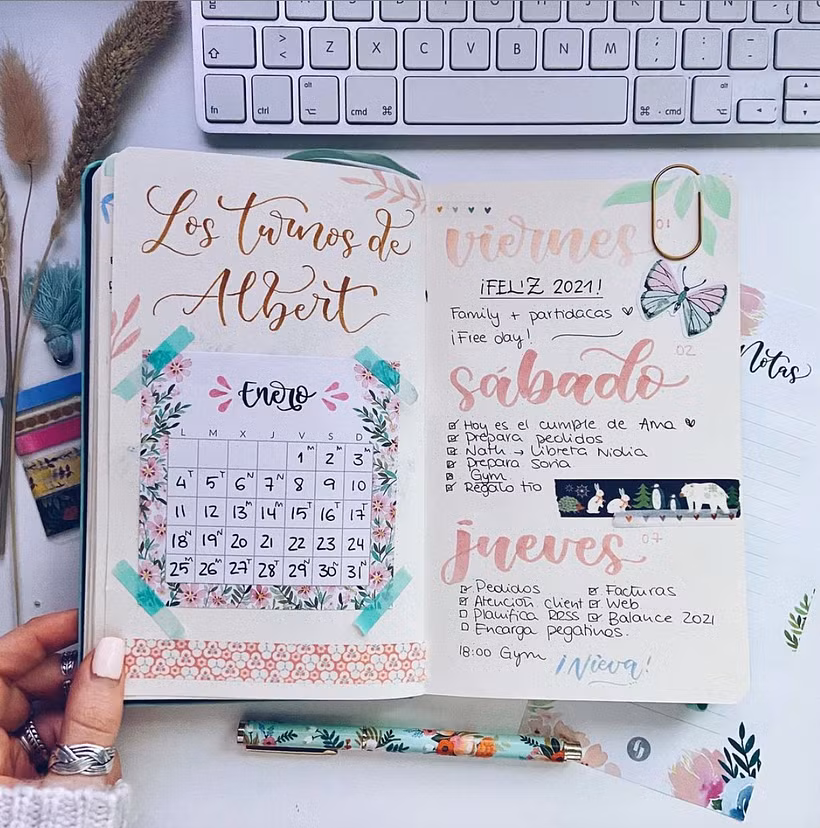 > <
Z
X
C
V
B
N
M
; ,
: .
_ -
fn
ctrl
alt
cmd ⌘
⌘ cmd
alt
Los turnos de
Albert
Enero
L M X J V S D
1M 2M 3M
4T 5T 6N 7N 8 9 10
11 12 13M 14M 15T 16T 17T
18N 19N 20 21 22 23 24
25M 26M 27T 28T 29N 30N 31N
viernes 01
¡FELIZ 2021!
Family + partidacas ♥
¡Free day!
sábado 02
Hoy es el cumple de Ama ♥
Prepara pedidos
Nath → Libreta Nidia
Prepara Sonia
Gym
Regalo tío
jueves 07
Pedidos
Atención client
Planifica RRSS
Encarga pegatinas.
Facturas
Web
Balance 2021
18:00 Gym
¡Nieva!
Notas